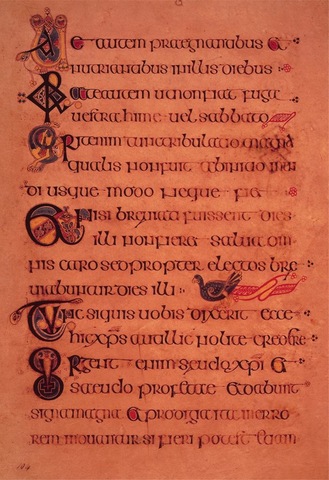 Ue autem praegnantibus et
nutrientibus in illis diebus
Rate autem ut non fiat fuga
uestra hieme uel sabbato
Erit enim tunc tribulatio magna
qualis non fuit ab initio mun
di usque modo neque fiet
Et nisi breuiati fuissent dies
illi non fieret salua om
nis caro sed propter electos bre
uiabuntur dies illi
Tunc si quis uobis dixerit ecce
hic xps aut illic nolite credere
Surgent enim seudo xpi et
seudo profetae et dabunt
signa magna et prodigia ita ut in erro
rem moueantur si fieri potest etiam